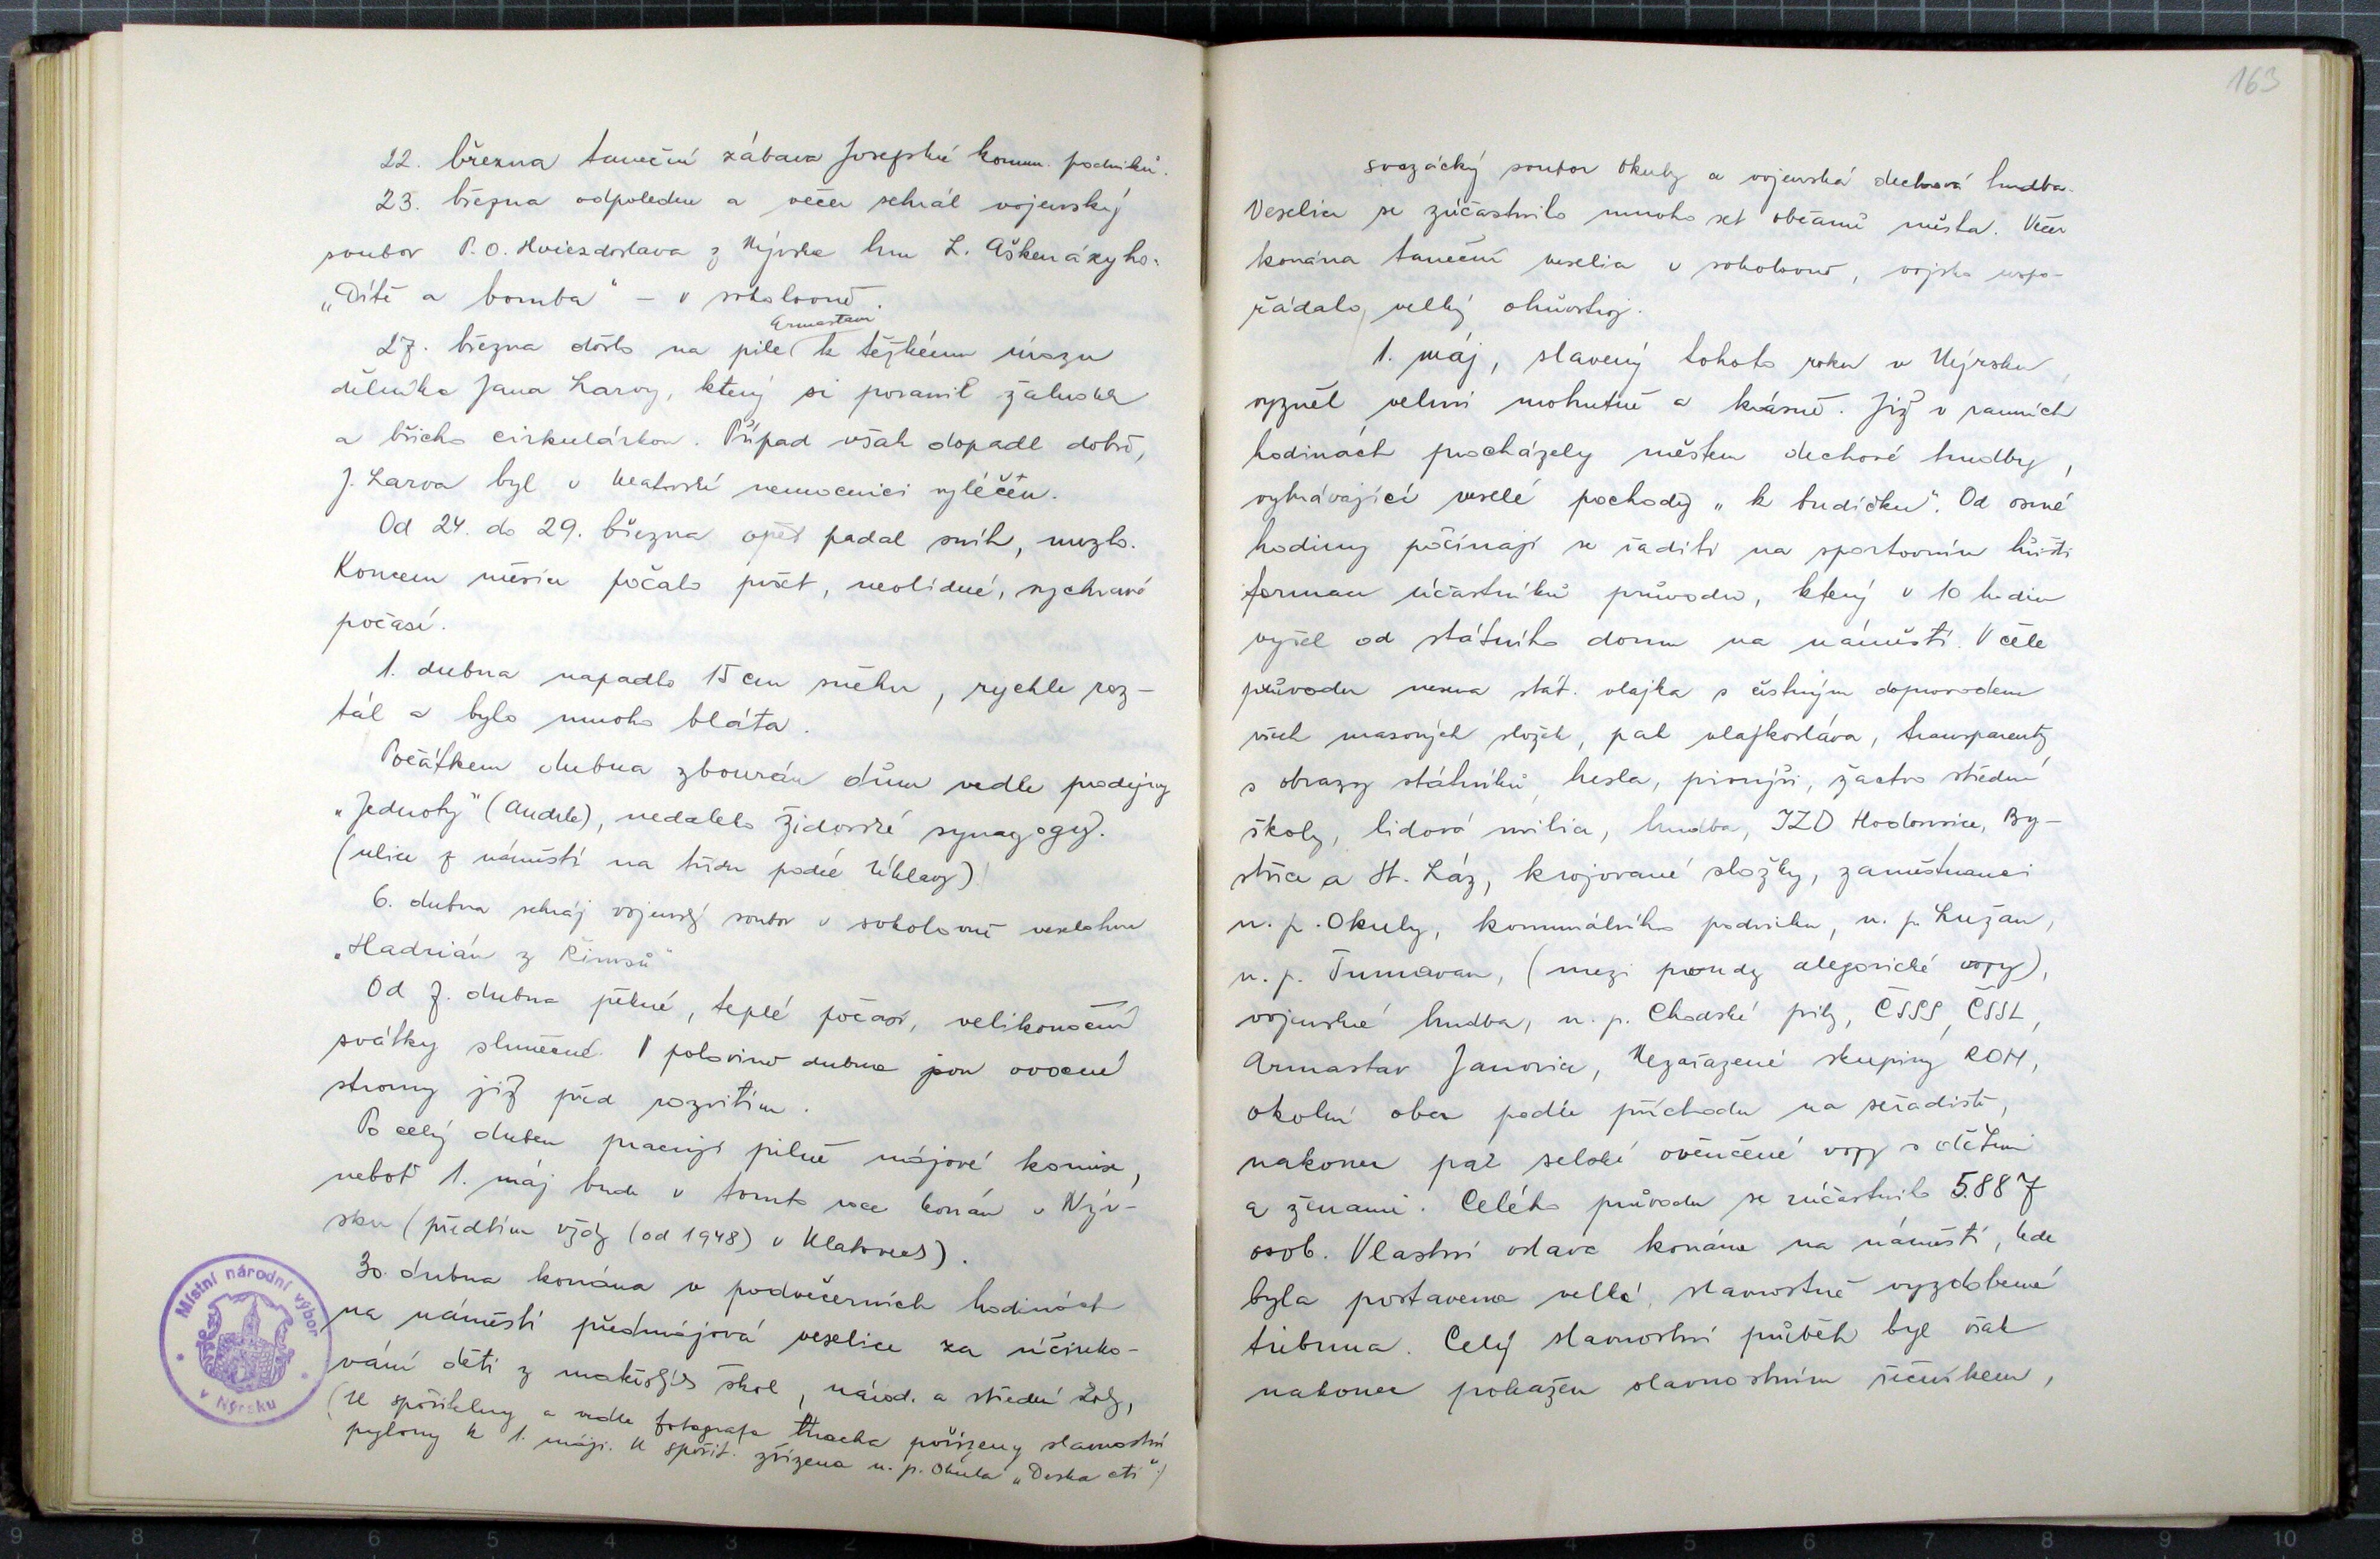 22. března taneční zábava Josefské komun. podniků.
23. března odpoledne a večer sehrál vojenský
soubor P. O. Hviezdoslava z Nýrska hru L. Aškenázyho:
„Dítě a bomba" – v sokolovně.
Armastavu
27. března došlo na pile k těžkému úrazu
dělníka Jana Larvy, který si poranil žaludek
a břicho cirkulárkou. Případ však dopadl dobře,
J. Larva byl v klatovské nemocnici vyléčen.
Od 24. do 29. března opět padal sníh, mrzlo.
Koncem měsíce počalo pršet, neklidné, sychravé
počasí.
1. dubna napadlo 15 cm sněhu, rychle roz-
tál a bylo mnoho bláta.
Počátkem dubna zbourán dům vedle prodejny
„Jednoty" (Andrle), nedaleko židovské synagogy.
(ulice z náměstí na třídu podél Úhlavy)
6. dubna sehrál vojenský soubor v sokolovně veselohru
„Hadrián z Římsů"
Od 7. dubna pěkné, teplé počasí, velikonoční
svátky slunečné. V polovině dubna jsou ovocné
stromy již před rozvitím.
Po celý duben pracují pilně májové komise,
neboť 1. máj bude v tomto roce konán v Nýr-
sku (předtím vždy (od 1948) v Klatovech).
30. dubna konána v podvečerních hodinách
na náměstí předmájová veselice za účinko-
vání dětí z mateřských škol, národ. a střední školy,
(U spořitelny a vedle fotografa Macha pořízeny slavnostní
pylony k 1. máji. U spořit. zřízena n. p. Okula „Deska cti".)
Místní národní výbor
v Nýrsku
163
svazácký soubor Okuly a vojenská dechová hudba.
Veselice se zúčastnilo mnoho set občanů města. Večer
konána taneční veselice v sokolovně, vojsko uspo-
řádalo velký ohňostroj.
1. máj, slavený tohoto roku v Nýrsku,
vyzněl velmi mohutně a krásně. Již v ranních
hodinách procházely městem dechové hudby,
vyhrávající veselé pochody „k budíčku". Od osmé
hodiny počínají se řaditi na sportovním hřišti
formace účastníků průvodu, který v 10 hodin
vyšel od státního domu na náměstí. V čele
průvodu nesena stát. vlajka s čestným doprovodem
všech masových složek, pak vlajkosláva, transparenty
s obrazy státníků, hesla, pionýři, žactvo střední
školy, lidová milice, hudba, JZD Hodousice, By-
střice a St. Láz, krojované složky, zaměstnanci
n. p. Okuly, komunálního podniku, n. p. Lužan,
n. p. Šumavan, (mezi proudy alegorické vozy),
vojenská hudba, n. p. Chodské pily, ČSSS, ČSSL,
Armastav Janovice, Nezařazené skupiny ROH,
okolní obce podle příchodu na seřadiště,
nakonec pak selské ověnčené vozy s dětmi
a ženami. Celého průvodu se zúčastnilo 5.887
osob. Vlastní oslava konána na náměstí, kde
byla postavena velká, slavnostně vyzdobená
tribuna. Celý slavnostní průběh byl však
nakonec pokažen slavnostním řečníkem,